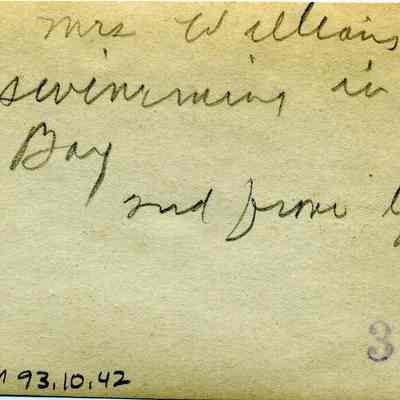 Mrs Williams
swimming in
Bay
2nd from
3
93.10.42